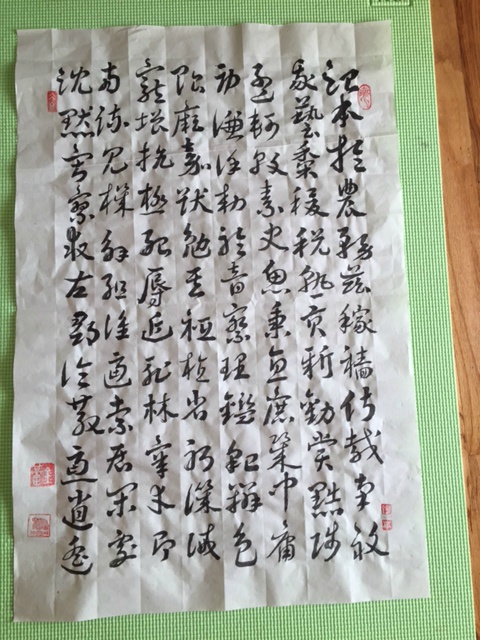 治本於農務茲稼穡俶載南畝
我藝黍稷稅熟貢新勸賞黜陟
孟軻敦素史魚秉直庶幾中庸
勞謙謹勅聆音察理鑑貌辨色
貽厥嘉猷勉其祗植省躬譏誡
寵增抗極殆辱近恥林皋幸即
兩疏見機解組誰逼索居閑處
沈默寂寥求古尋論散慮逍遙